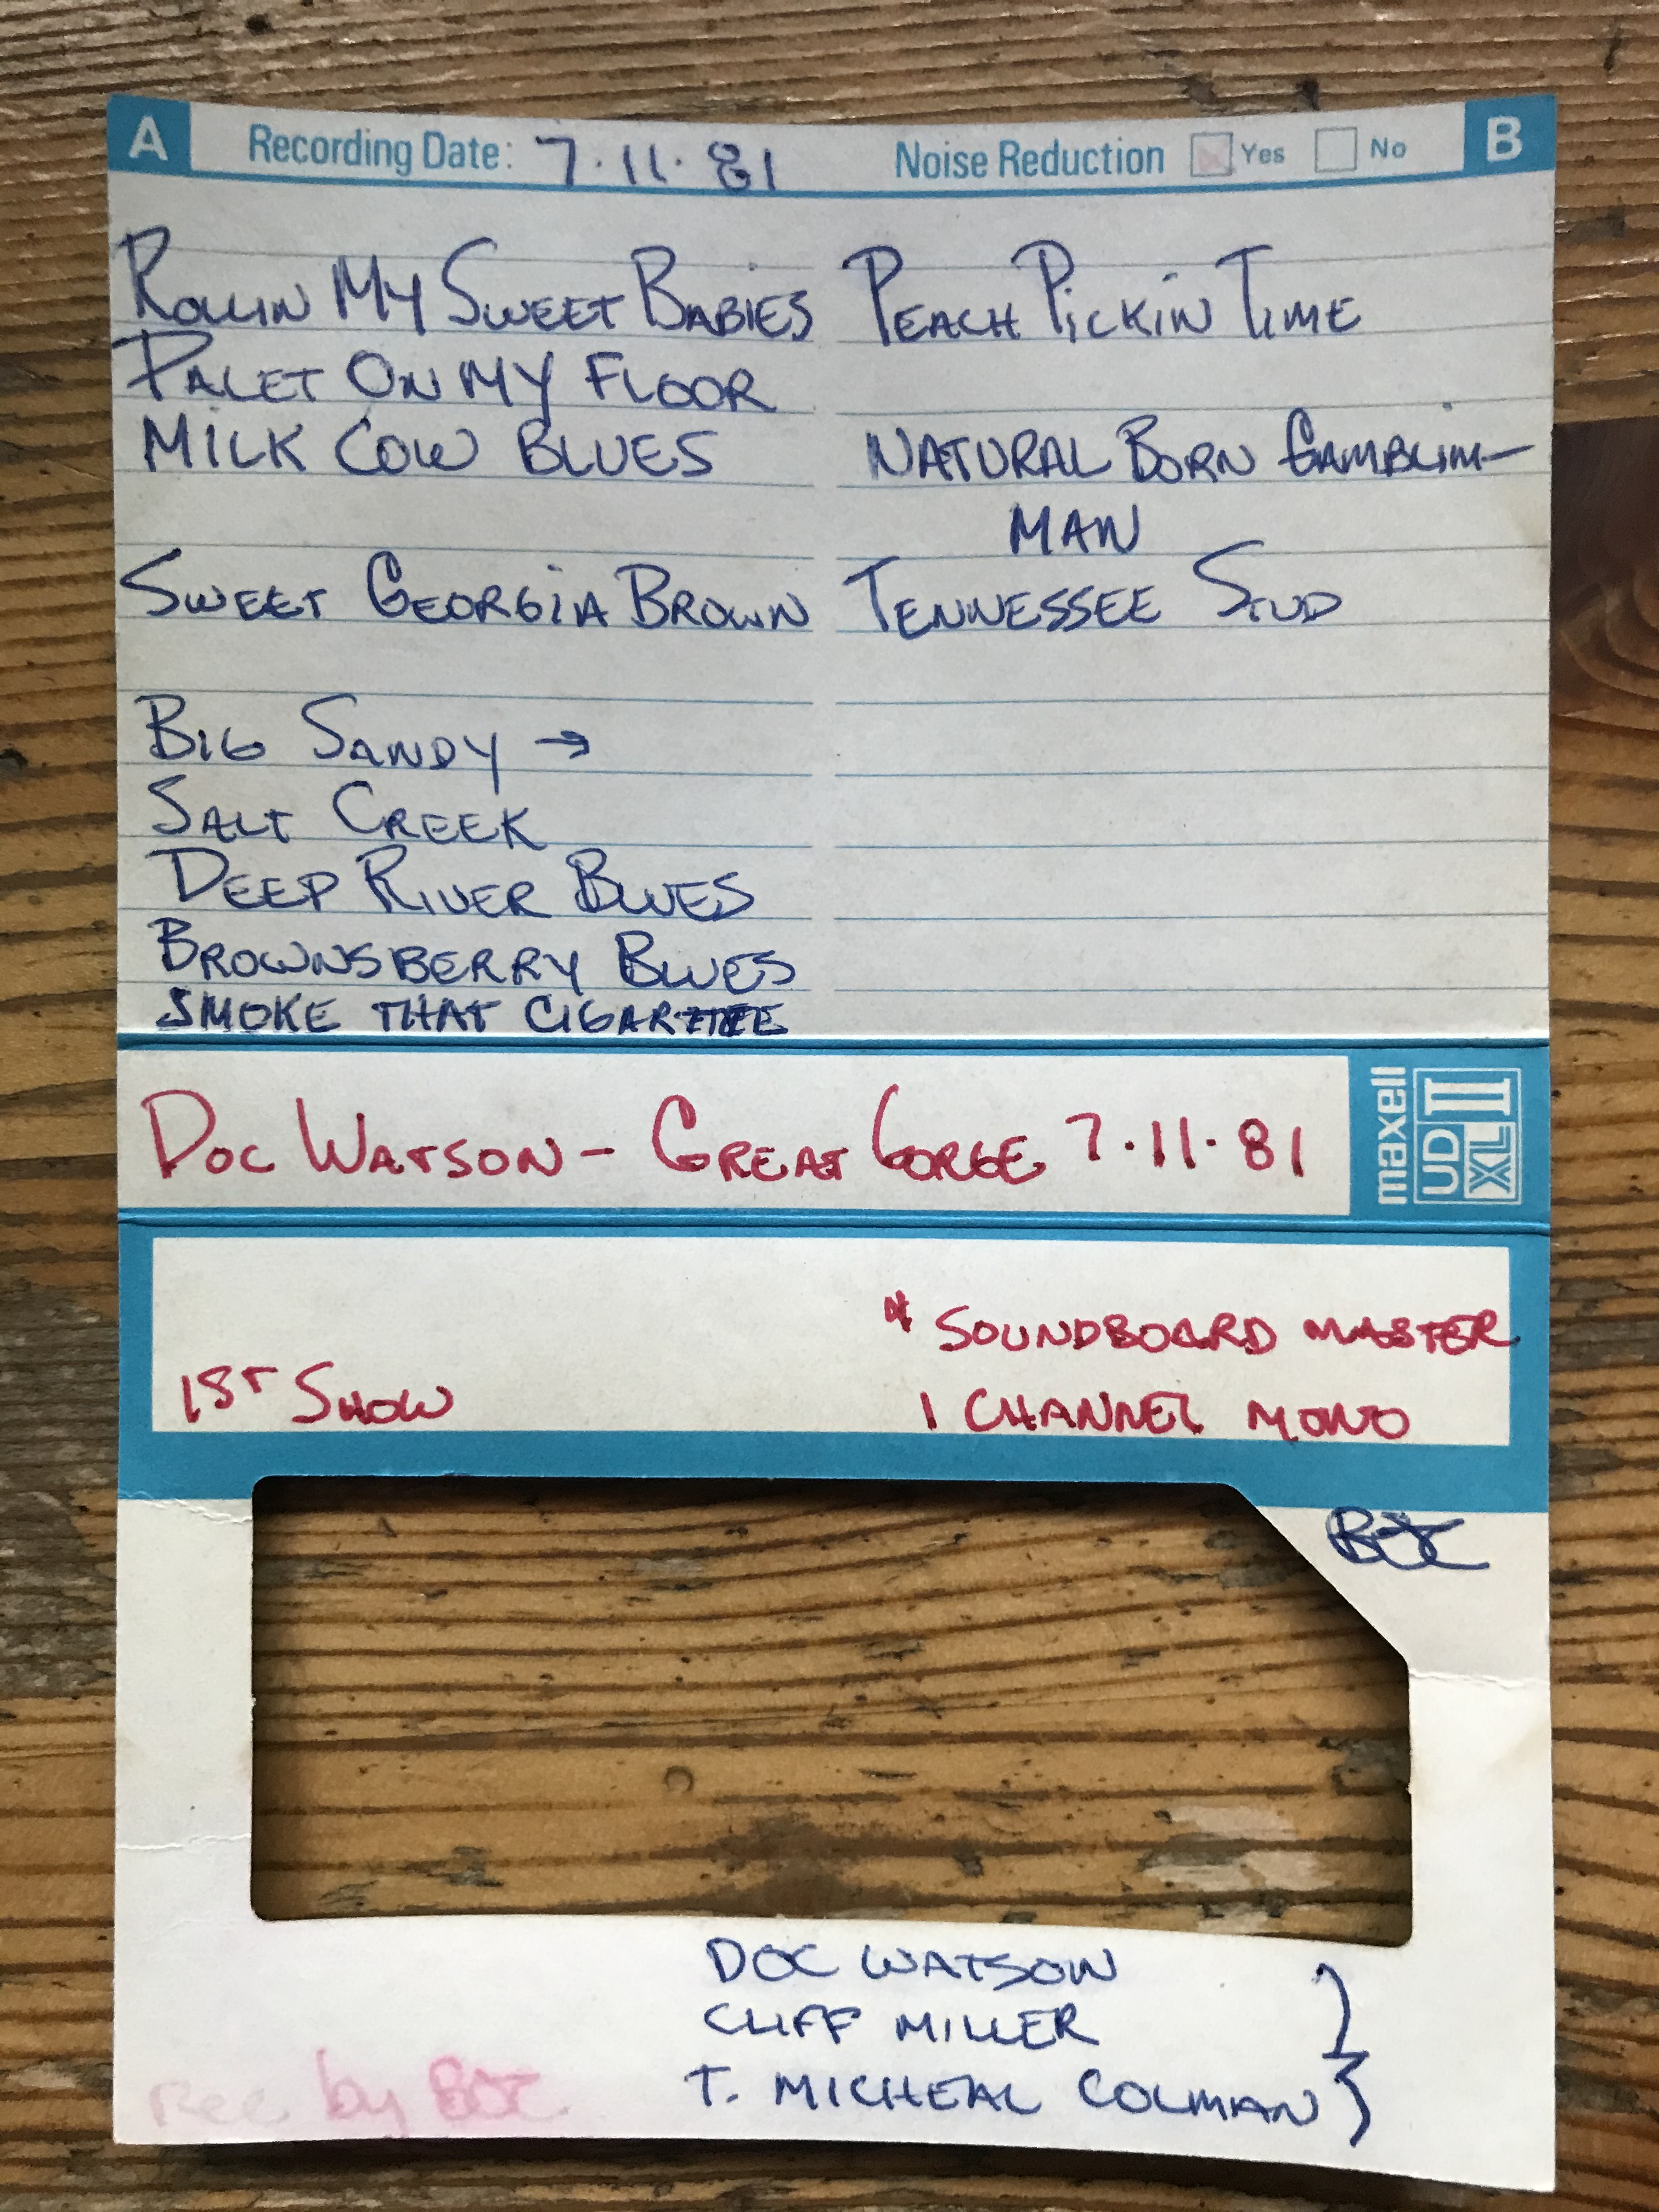 A Recording Date: 7·11·81 Noise Reduction Yes No B
Rollin My Sweet Babies
Palet On My Floor
Milk Cow Blues
Sweet Georgia Brown
Big Sandy →
Salt Creek
Deep River Blues
Brownsberry Blues
Smoke That Cigarette
Peach Pickin Time
Natural Born Gamblin—
Man
Tennessee Stud
Doc Watson – Great Gorge 7·11·81
maxell
UD
XL II
* Soundboard Master
1st Show
1 Channel Mono
Doc Watson
Cliff Miller
T. Micheal Colman
Rec by